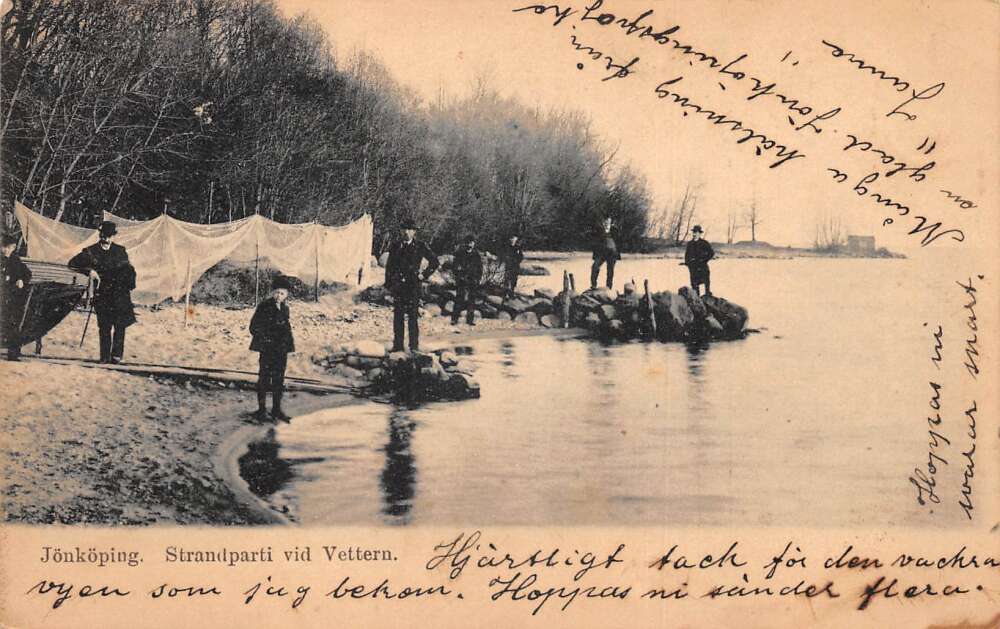 Jönköping. Strandparti vid Vettern.
Hjärtligt tack för den vackra
vyen som jag bekom. Hoppas ni sänder flera.
Hoppas ni
svarar snart.
Många hälsning från
en glad Jönköpingspojke
"Sunne"